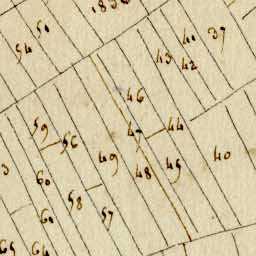 1836
50
54
37
40
43
42
46
44
47
59
56
49
48
45
40
60
58
57
60
65
64